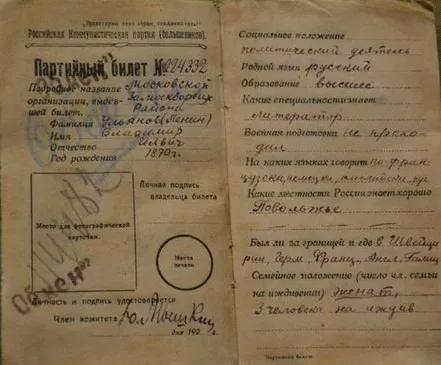 "Пролетарии всех стран, соединяйтесь!"
Российская Коммунистическая партия (большевиков).
Партийный билет № 224332
Подробное название Московской
организации, выдав- Замоскворецк
шей билет. Района
Фамилия Ульянов (Ленин)
Имя Владимир
Отчество Ильич
Год рождения 1870 г.
Личная подпись
владельца билета
Место для фотографической
карточки.
Место
печати
Обмен"
Личность и подпись удостоверяется
Член комитета
дня 192 г.
Социальное положение
политический деятель
Родной язык русский
Образование высшее
Какие специальности знает
литератор.
Военная подготовка не прохо-
дил
На каких языках говорит по-фран-
цузски, немецки, английски, рус
Какие местности России знает хорошо
Поволжье
Был ли за границей и где в Швейца
рии, Герм, Франц., Англ., Галиц
Семейное положение (число чл. семьи
на иждивении) женат,
3 человека на иждив
Партийный билет